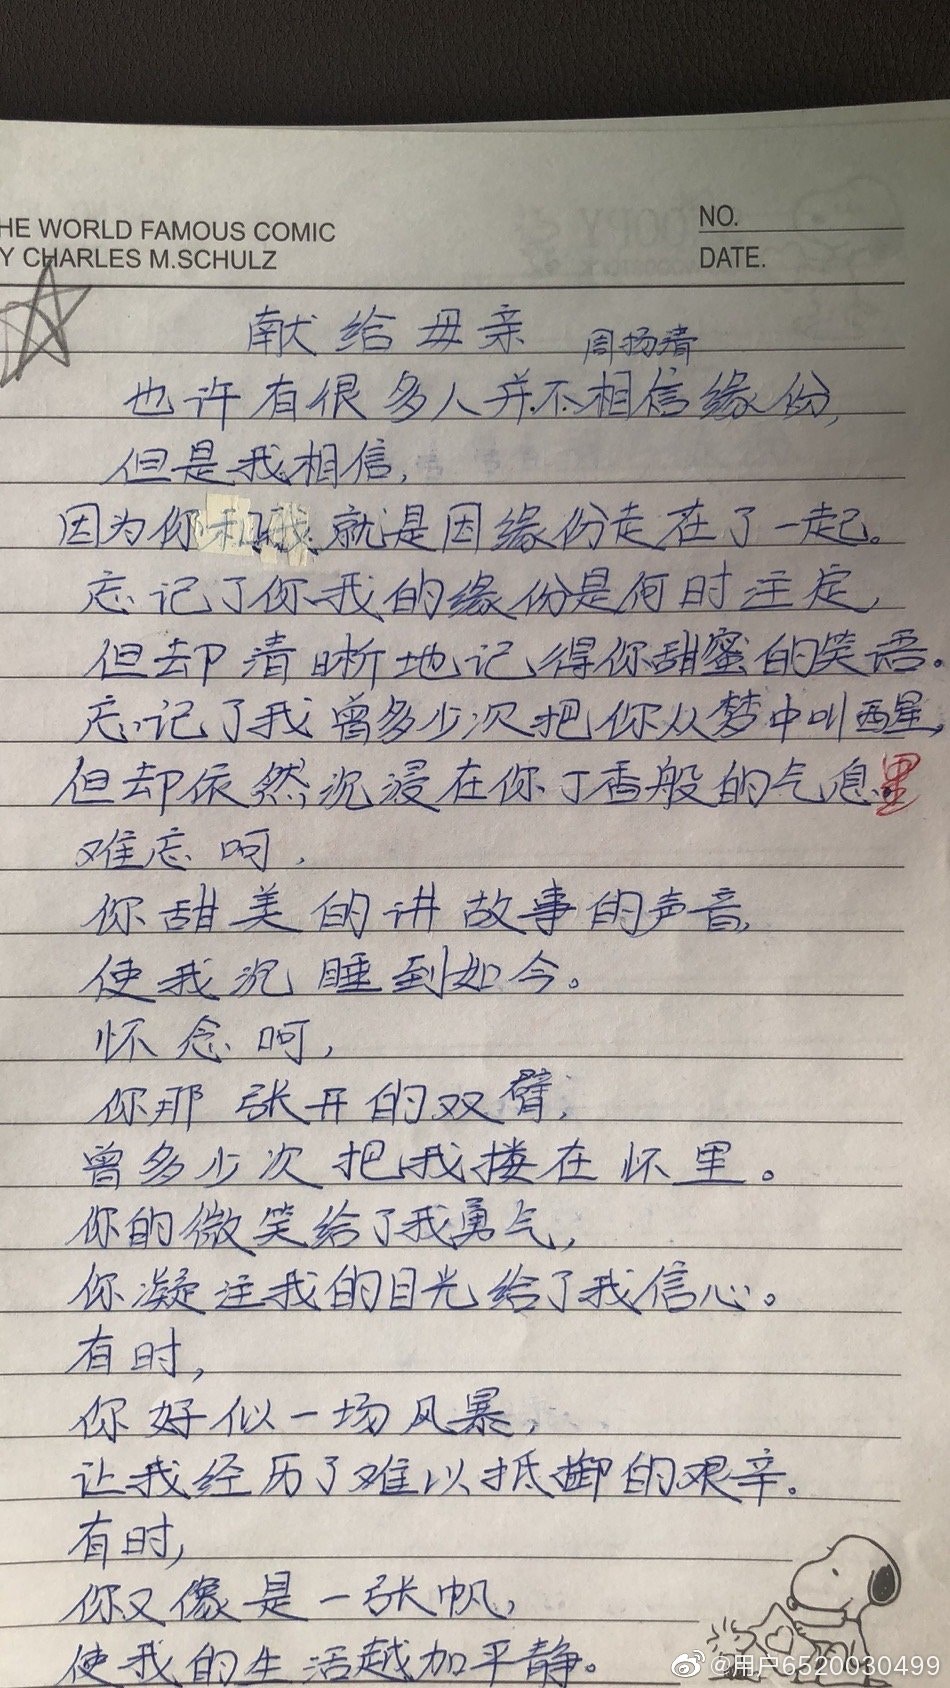 HE WORLD FAMOUS COMIC
Y CHARLES M.SCHULZ
NO.
DATE.
献给母亲 周扬清
也许有很多人并不相信缘份,
但是我相信,
因为你和我就是因缘份走在了一起。
忘记了你我的缘份是何时注定,
但却清晰地记得你甜蜜的笑语。
忘记了我曾多少次把你从梦中叫醒,
但却依然沉浸在你丁香般的气息里
难忘呵,
你甜美的讲故事的声音,
使我沉睡到如今。
怀念呵,
你那张开的双臂,
曾多少次把我搂在怀里。
你的微笑给了我勇气,
你凝注我的目光给了我信心。
有时,
你好似一场风暴,
让我经历了难以抵御的艰辛。
有时,
你又像是一张帆,
使我的生活越加平静。
@用户6520030499